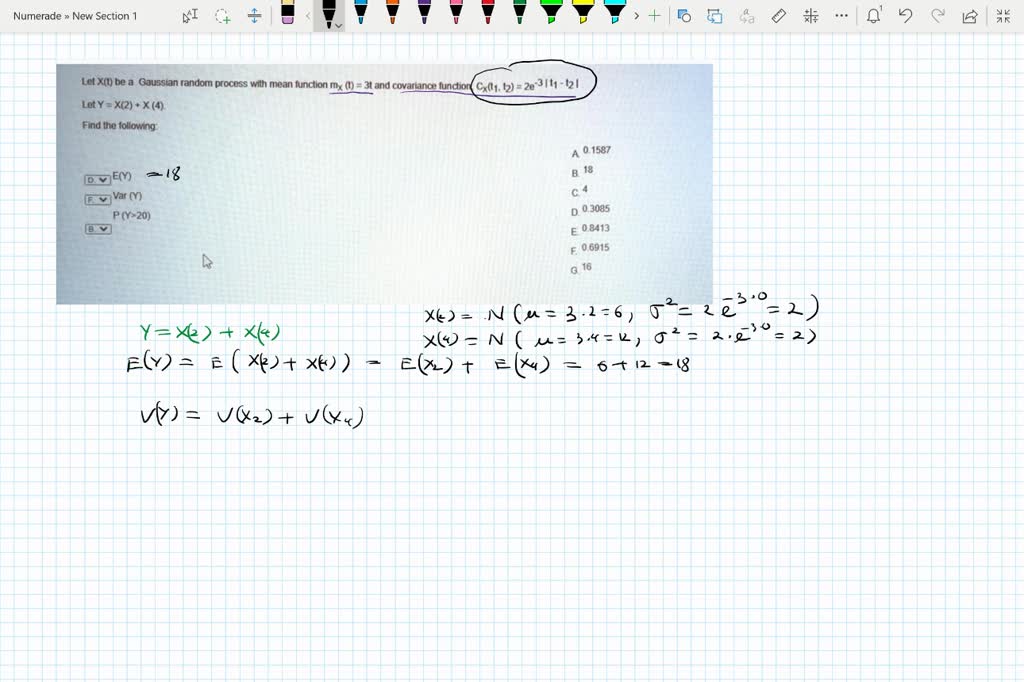 Numerade » New Section 1
Let X(t) be a Gaussian random process with mean function mX (t) = 3t and covariance function CX(t1, t2) = 2e-3 | t1 - t2 |
Let Y = X(2) + X (4).
Find the following:
D. E(Y) = 18
F. Var (Y)
P (Y>20)
B.
A. 0.1587
B. 18
C. 4
D. 0.3085
E. 0.8413
F. 0.6915
G. 16
X(2) = N (μ = 3.2 = 6, σ² = 2 e^-3.0 = 2)
Y = X(2) + X(4)
X(4) = N ( μ = 3.4 = 12, σ² = 2.e^-3.0 = 2)
E(Y) = E ( X(2) + X(4) ) = E(X2) + E(X4) = 6 + 12 = 18
V(Y) = V(X2) + V(X4)